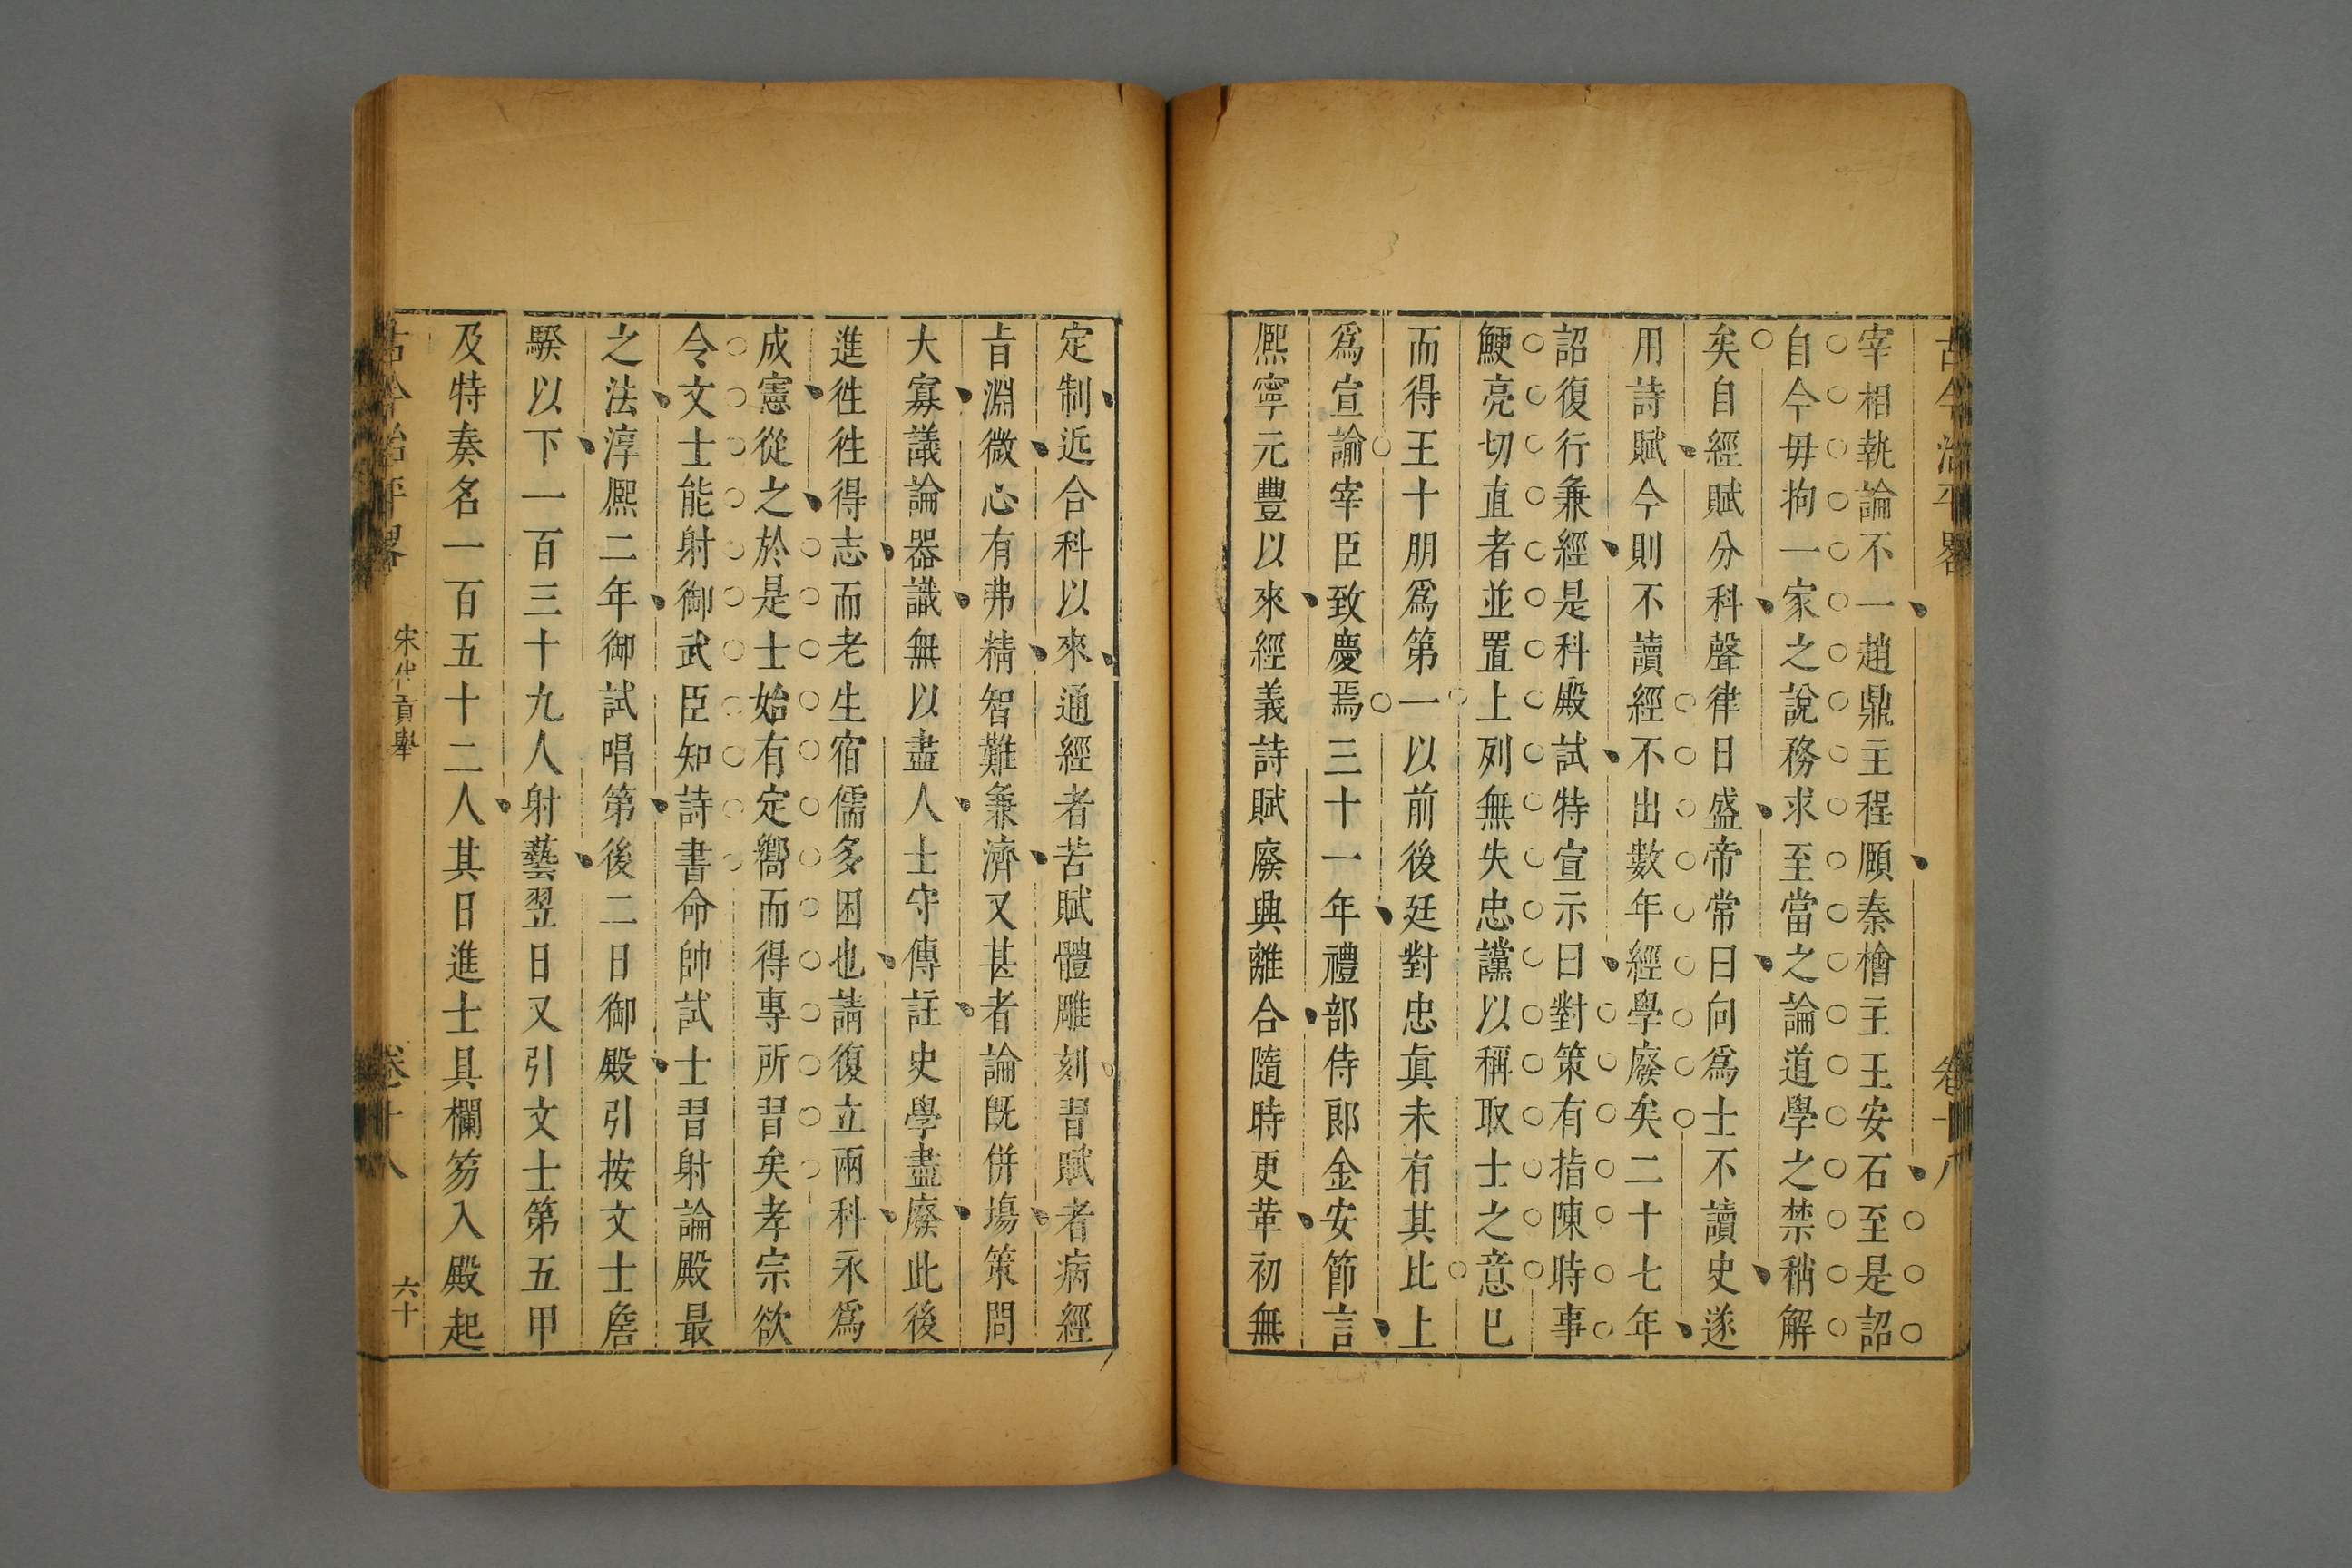 古今治平畧
卷十八
宰相執論不一趙鼎主程頤秦檜主王安石至是詔
自今毋拘一家之說務求至當之論道學之禁稍解
矣自經賦分科聲律日盛帝常曰向爲士不讀史遂
用詩賦今則不讀經不出數年經學廢矣二十七年
詔復行兼經是科殿試特宣示曰對策有指陳時事
鯁亮切直者並置上列無失忠讜以稱取士之意已
而得王十朋爲第一以前後廷對忠真未有其比上
爲宣諭宰臣致慶焉三十一年禮部侍郎金安節言
熈寧元豐以來經義詩賦廢興離合隨時更革初無
定制近合科以來通經者苦賦體雕刻習賦者病經
旨淵微心有弗精智難兼濟又甚者論既併塲策問
大寡議論器識無以盡人士守傳註史學盡廢此後
進徃徃得志而老生宿儒多困也請復立兩科永爲
成憲從之於是士始有定嚮而得專所習矣孝宗欲
令文士能射御武臣知詩書命帥試士習射論殿最
之法淳熈二年御試唱第後二日御殿引按文士詹
騤以下一百三十九人射藝翌日又引文士第五甲
及特奏名一百五十二人其日進士具欄笏入殿起
古今治平畧
宋代貢舉
卷十八
六十